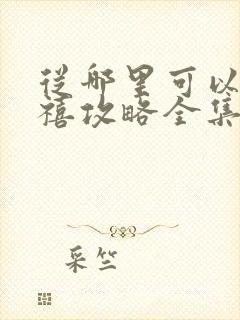 从哪里可以
禧攻略全集
采竺